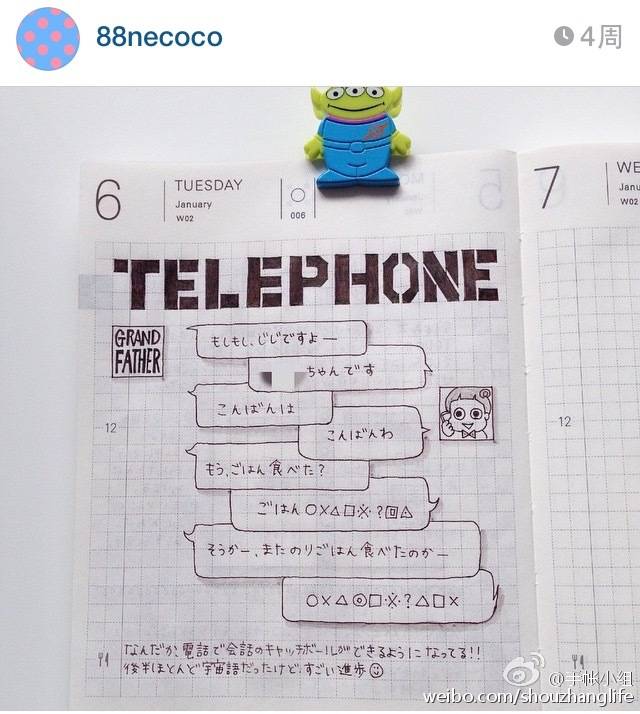 88necoco
4周
6
TUESDAY
January
W02
006
7
WE
Janu
W02
TELEPHONE
GRAND
FATHER
もしもし、じじですよー
ちゃんです
こんばんは
こんばんわ
もう、ごはん食べた?
ごはん○×△□※?回△
そうかー、またのりごはん食べたのかー
○×△◎□※?△□×
12
12
なんだか、電話で会話のキャッチボールができるようになってる!!
後半ほとんど宇宙語だったけど、すごい進歩☺
@手帐小组
weibo.com/shouzhanglife